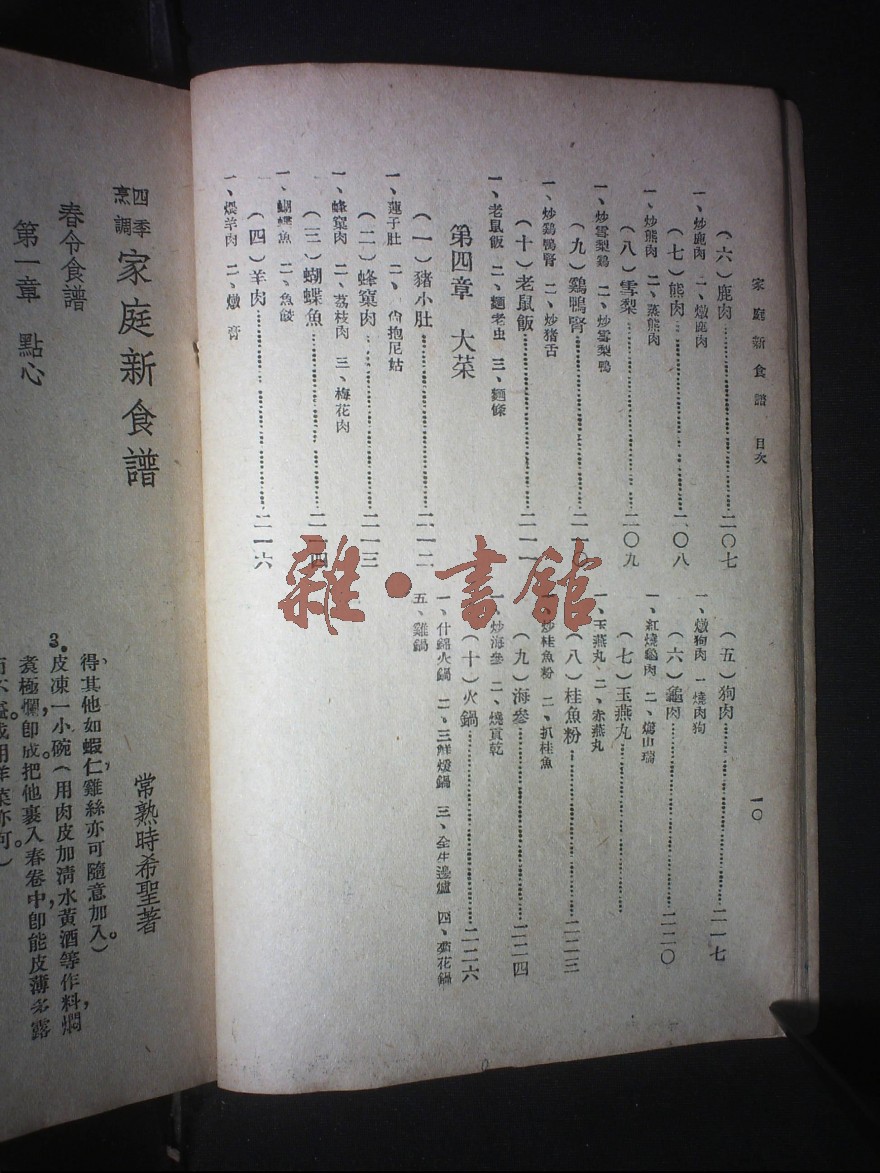 家庭新食譜 目次
一〇
(六)鹿肉…二〇七
一、炒鹿肉 二、燉鹿肉
(七)熊肉…二〇八
一、炒熊肉 二、蒸熊肉
(八)雪梨…二〇九
一、炒雪梨鷄 二、炒雪梨鴨
(九)鷄鴨腎…二一〇
一、炒鷄鴨腎 二、炒猪舌
(十)老鼠飯…二一一
一、老鼠飯 二、麵老虫 三、麵條
第四章 大菜
(一)豬小肚…二一二
一、蓮子肚 二、 抱尼姑
(二)蜂窠肉…二一三
一、蜂窠肉 二、荔枝肉 三、梅花肉
(三)蝴蝶魚…二一四
一、蝴蝶魚 二、魚
(四)羊肉…二一六
一、煨羊肉 二、燉 膏
(五)狗肉…二一七
一、燉狗肉 一燒肉狗
(六)龜肉…二二〇
一、紅燒龜肉 二、 山瑞
(七)玉燕丸…
一、玉燕丸 二、赤燕丸
(八)桂魚粉…二二三
一、炒桂魚粉 二、扒桂魚
(九)海參…二二四
一、炒海參 二、燒貢乾
(十)火鍋…二二六
一、什錦火鍋 二、三鮮煖鍋 三、全生邊爐 四、菊花鍋
五、雞鍋
四季烹調 家庭新食譜
常熟時希聖著
春令食譜
第一章 點心
得、其他如蝦仁雞絲亦可隨意加入)。
3.皮凍一小碗(用肉皮加清水黃酒等作料、燜
煮極爛、即成。把他裹入春卷中、即能皮薄多露
雜·書館